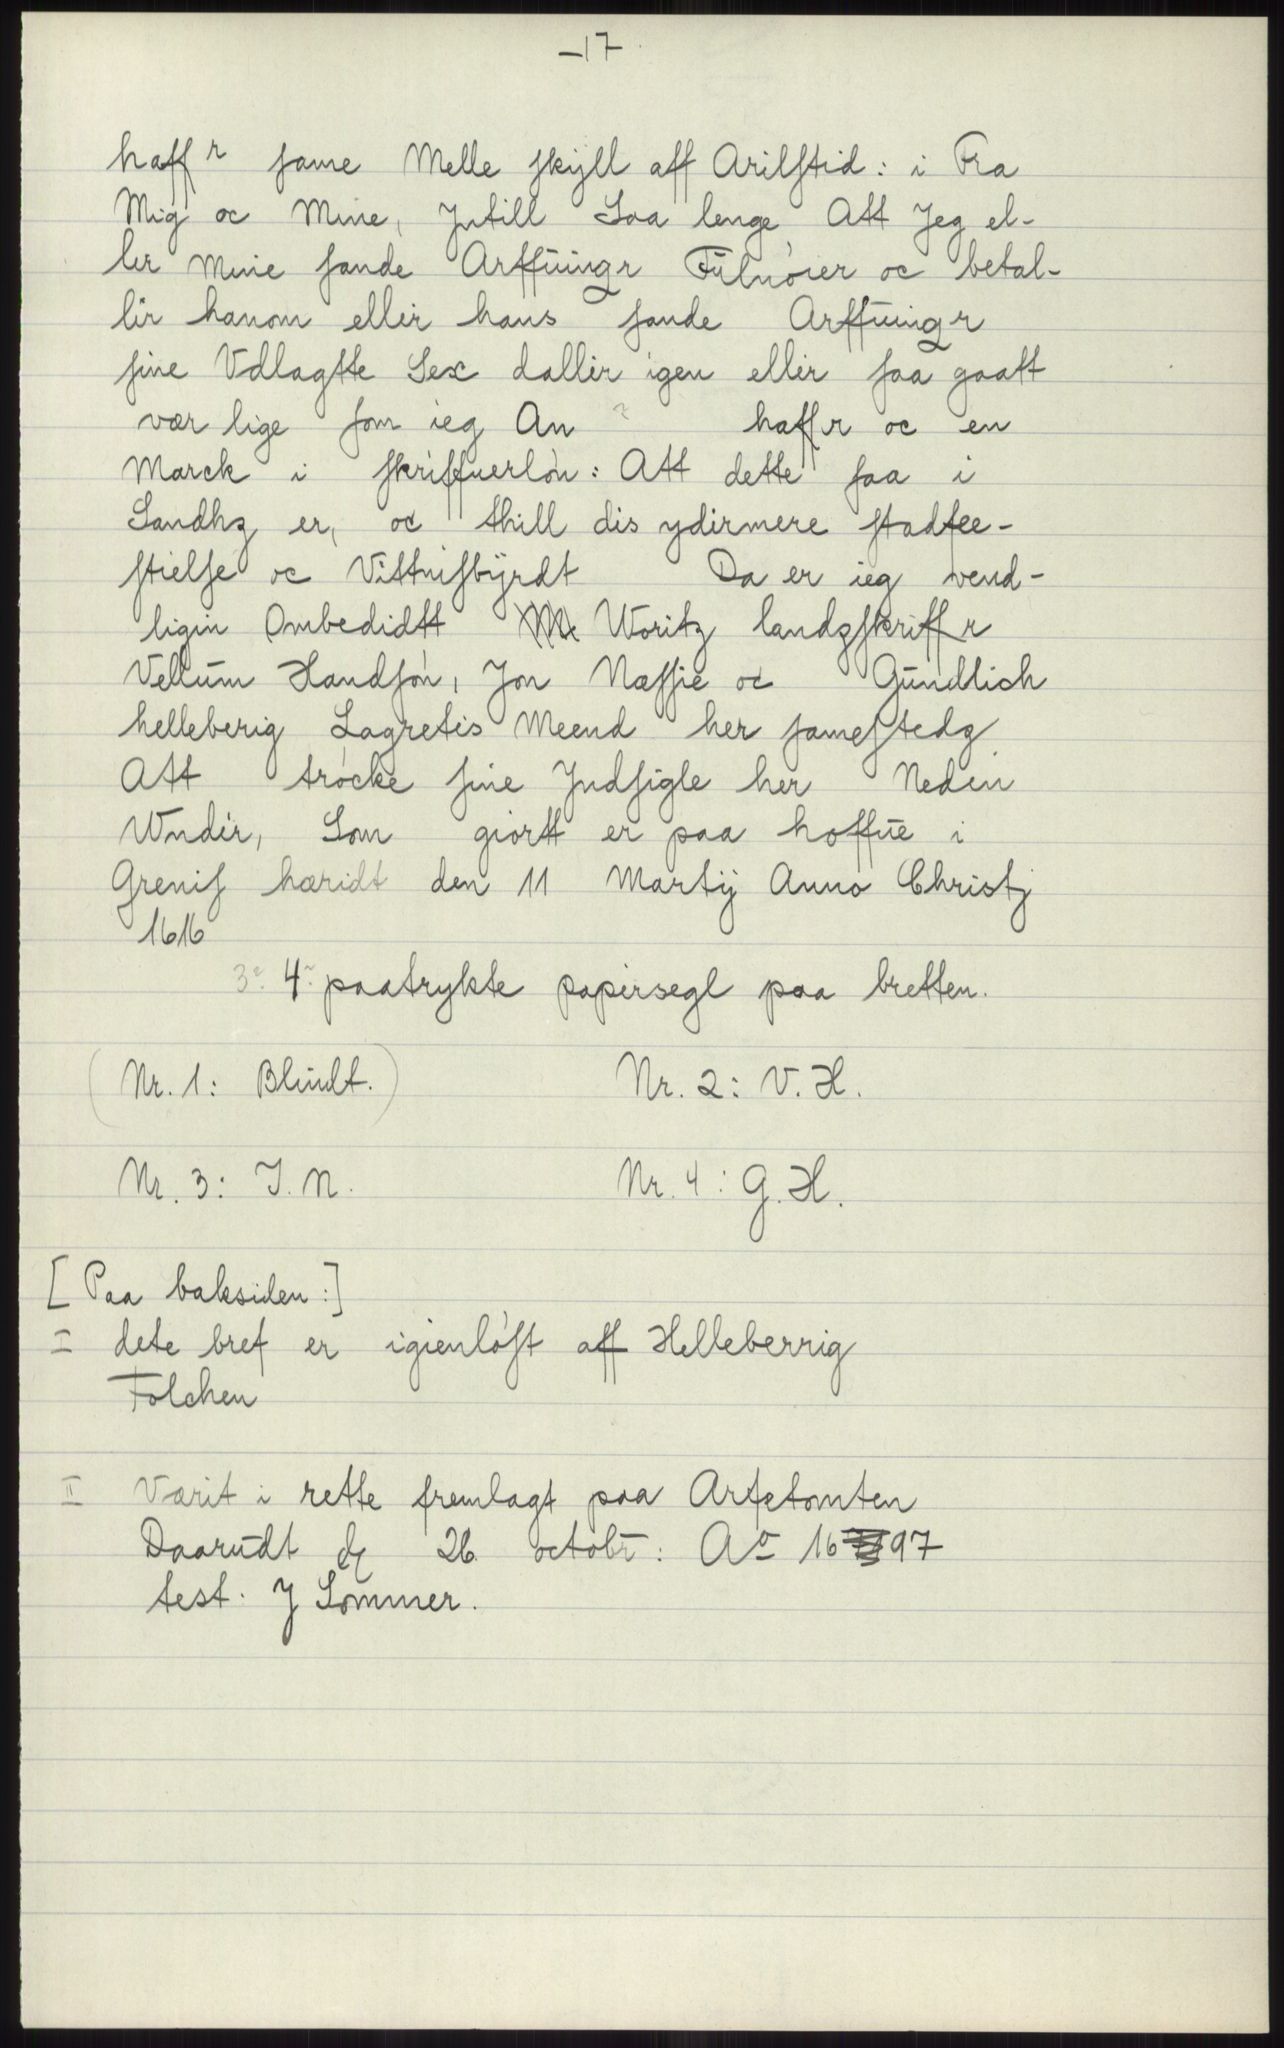 -17
haffr same Melle skyll aff Arilstid: i Fra
Mig oc Mine, Jntill Saa lenge Att Jeg el-
ler mine sande Arffuingr Fulnöier oc betal-
lir hanom ellir hans sande Arffuingr
sine Vdlagtte Sex dallir igen ellir saa gaatt
vær lige som ieg An haffr oc en
Marck i skriffuerlön: Att dette saa i
Sandhz er, oc thill dis ydirmere stadfee-
stielse oc Vittnisbÿrdt Da er ieg vend-
ligin Ombedidtt Woritz landzskriffr
Vellum Handsön, Jon Næssie oc Gundlich
helleberig Lagretis Meend her samestedz
Att tröcke sine Jndsigle her Neden
Wndér, Som giortt er paa hoffue i
Grenis hæridt den 11 Martij Anno Christj
1616
3 4 paatrykte papirsegl paa bretten.
(Nr. 1: Blindt.) Nr. 2: V. H.
Nr. 3: J. N. Nr. 4: G. H.
[Paa baksiden:]
I dete bref er igienlöst aff Helleberrig
Folchen
II Værit i rette fremlagt paa Arfetomten
Daarudt d 26 octobr: Ao 1697
test. J Sommer.